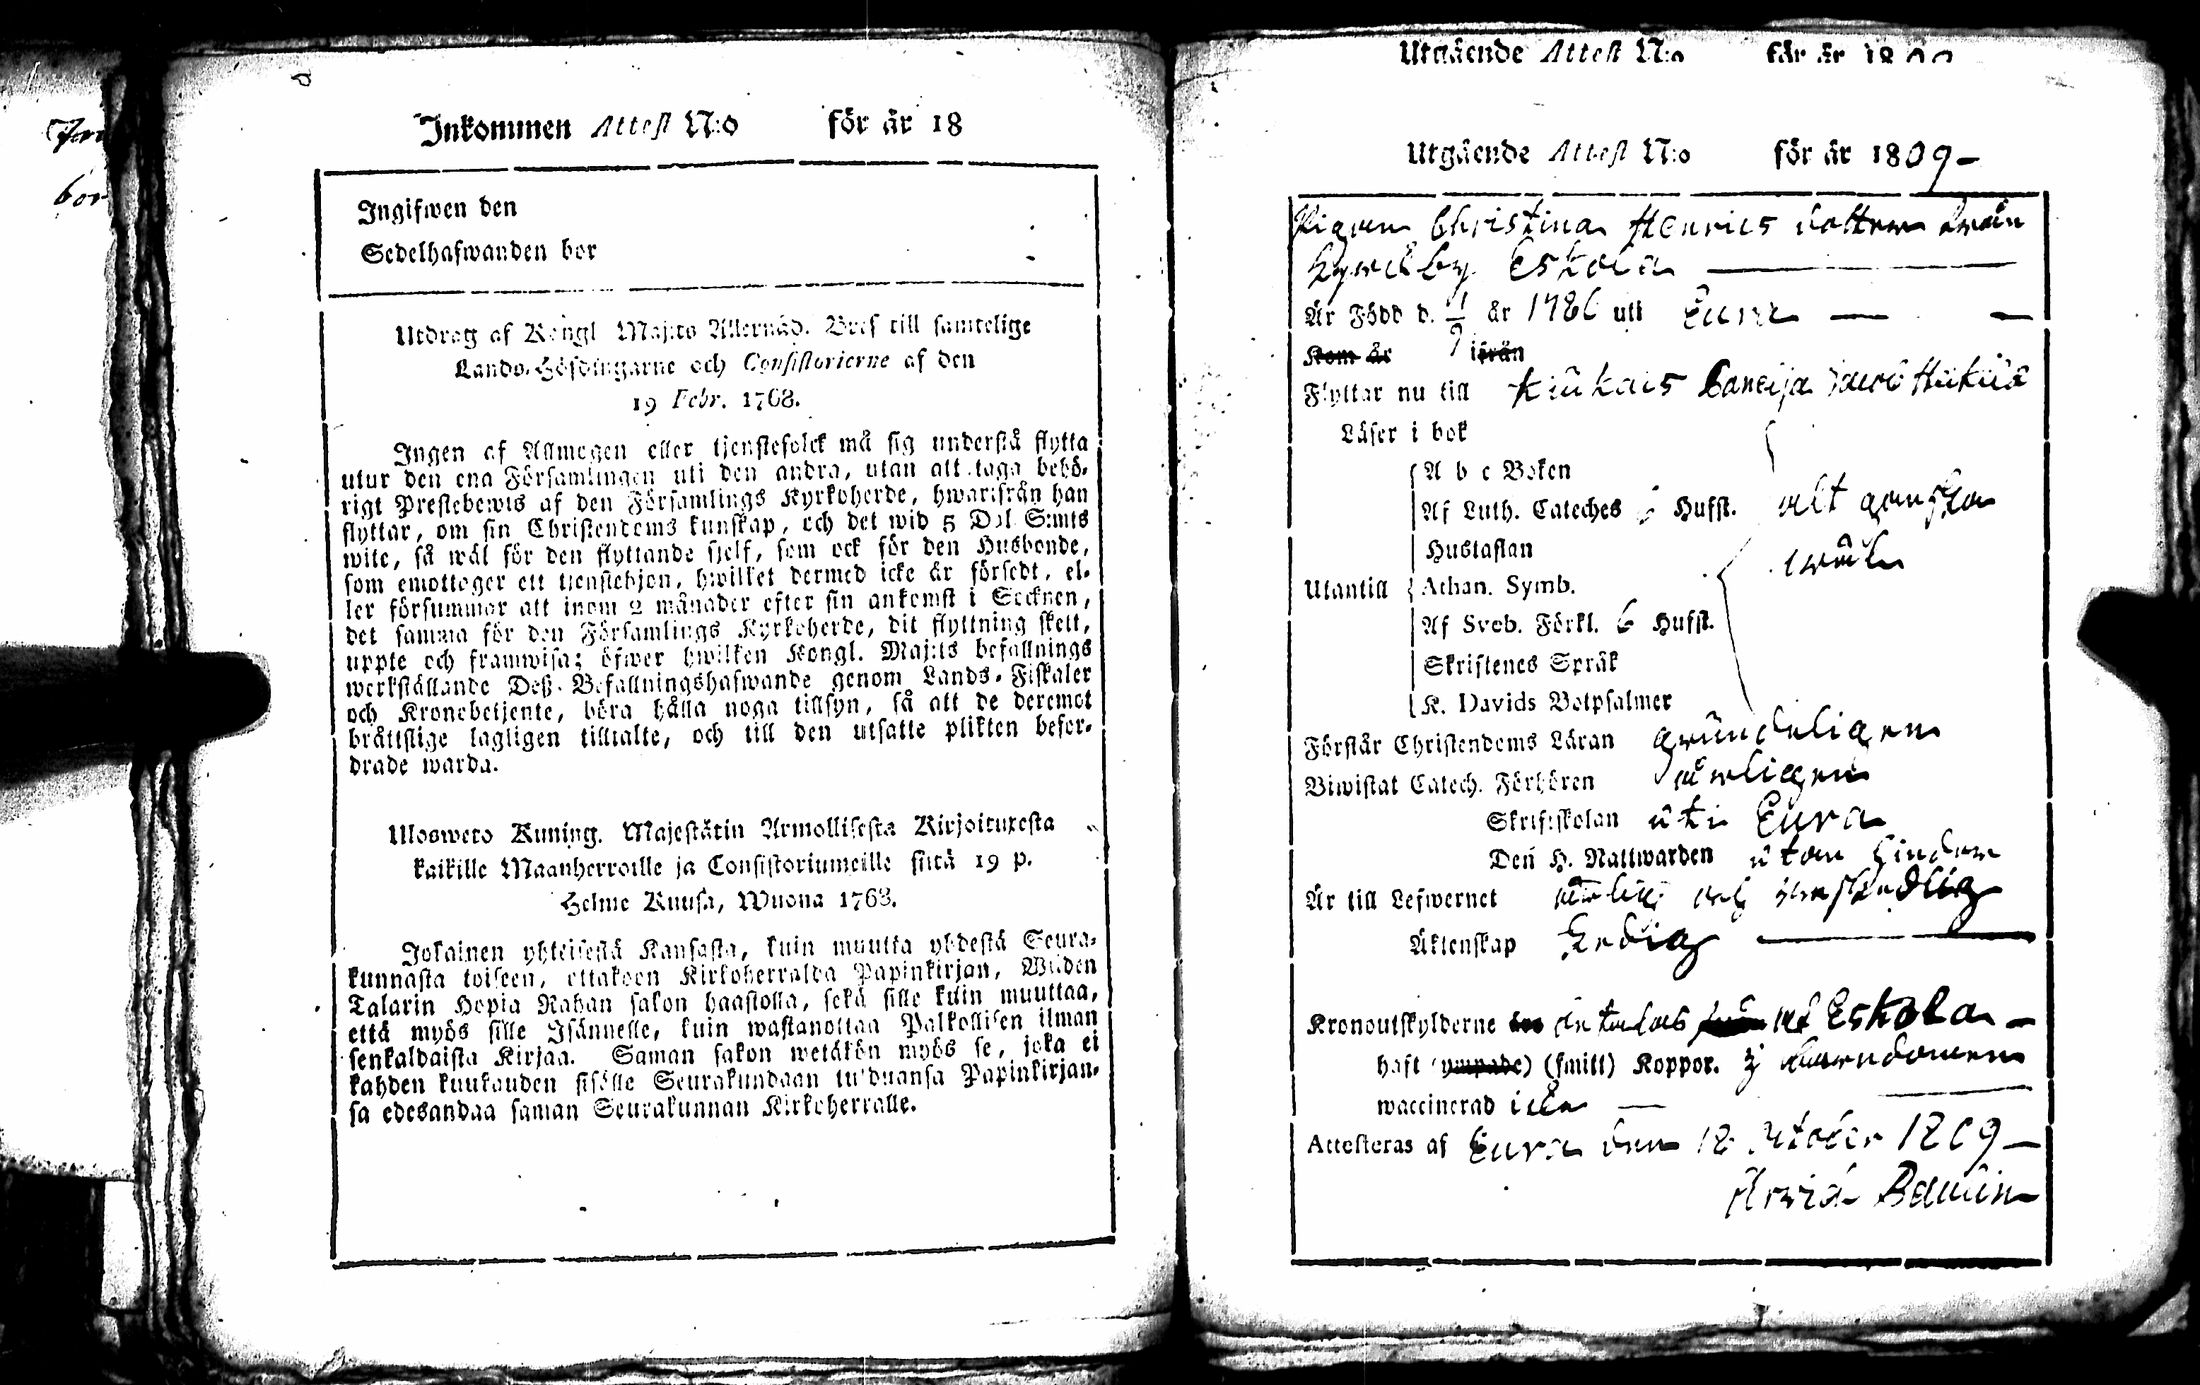 Inkommen Attest N:o för år 18
Ingifwen den
Sedelhafwanden bor
Utdrag af Kongl Maj:ts Allernåd. Bref till samtelige
Lands-Höfdingarne och Consistorierne af den
19 Febr. 1768.
Ingen af Allmogen eller tjenstefolck må sig understå flytta
utur den ena Församlingen uti den andra, utan att taga behö-
rigt Prestebewis af den Församlings Kyrkoherde, hwarifrån han
flyttar, om sin Christendoms kunskap, och det wid 5 Dal S:mts
wite, så wäl för den flyttande sjelf, som ock för den Husbonde,
som emottager ett tjenstehjon, hwilket dermed icke är försedt, el-
ler försummar att inom 2 månader efter sin ankomst i Socknen,
det samma för den Församlings Kyrkoherde, dit flyttning skett,
uppte och framwisa; öfwer hwilken Kongl. Maj:ts befallnings
werkställande Deß Befallningshafwande genom Lands-Fiskaler
och Kronobetjente, böra hålla noga tillsyn, så att de deremot
bråttslige lagligen tilltalte, och till den utsatte plikten befor-
drade warda.
Ulosweto Kuning. Majestätin Armollisesta Kirjoituxesta
kaikille Maanherroille ja Consistoriumeille siitä 19 p.
Helme Kuusa, Wuona 1768.
Jokainen yhteisestä Kansasta, kuin muutta yhdestä Seura-
kunnasta toiseen, ottakoon Kirkoherralda Papinkirjan, Wiiden
Talarin Hopia Rahan sakon haastolla, sekä sille kuin muuttaa,
että myös sille Isännelle, kuin wastanottaa Palkollisen ilman
senkaldaista Kirjaa. Saman sakon wetäkön myös se, joka ei
kahden kuukauden sisälle Seurakundaan tulduansa Papinkirjan-
sa edesandaa saman Seurakunnan Kirkoherralle.
Utgående Attest N:o för år 1809
Utgående Attest N:o för år 1809 -
Pigan Christina Henrics dotter från
Kyrckby Eskola
Är Född d. 1/9 år 1786 uti Eura
Kom år ifrån
Flyttar nu till Kiukais Jacob
Läser i bok
A b c Boken
Af Luth. Cateches 6 Hufst. alt ganska
Hustaflan wäl
Utantill Athan. Symb.
Af Sveb. Förkl. 6 Hufst.
Skriftenes Språk
K. Davids Botpsalmer
Förstår Christendoms Läran grundeligen
Biwistat Catech. Förhören årligen
Skriftskolan uti Eura
Den H. Nattwarden utan hinder
Är till Lefwernet ärlig och beskedlig
Äktenskap Ledig
Kronoutskylderne betalas Eskola
haft (ympade) (smitt) Koppor. i barndomen
waccinerad icke
Attesteras af Eura den 18 October 1809
Arvid